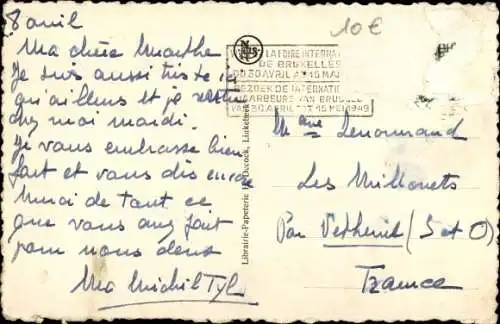 8 avril
Ma chère Marthe
Je suis aussi triste ici
qu'ailleurs et je
chez moi mardi.
Je vous embrasse bien
fort et vous dis encore
merci de tout ce
que vous avez fait
pour nous deux
10€
LA FOIRE INTERNAT
DE BRUXELLES
DU 30 AVRIL AU 15 MAI
BEZOEK DE INTERNATION
JAARBEURS VAN BRUSSEL
VAN 30 APRIL TOT 15 MEI 1949
Librairie-Papeterie De Decock,
Mme Lenormand
Les Millonets
Par Vetheuil (S et O)
France